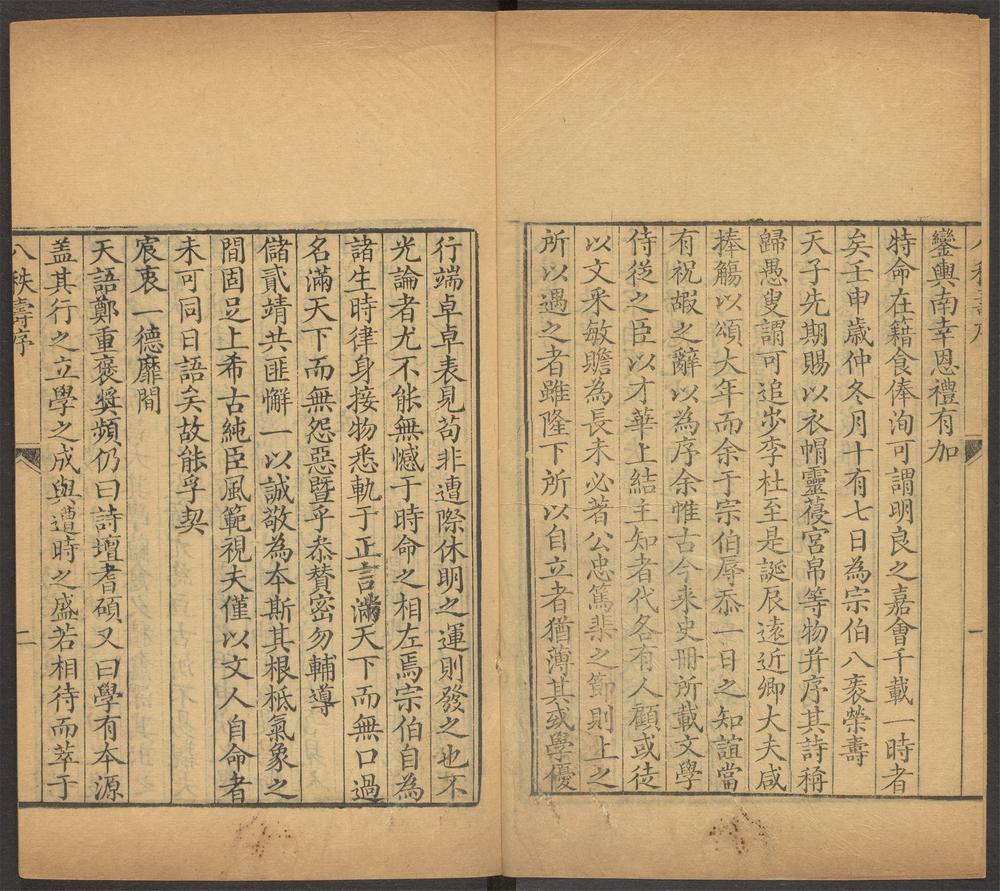 鑾輿南幸恩禮有加
特命在籍食俸洵可謂明良之嘉會千載一時者
矣壬申歲仲冬月十有七日為宗伯八袠榮壽
天子先期賜以衣帽靈薓宮帛等物并序其詩稱
歸愚叟謂可追步李杜至是誕辰遠近卿大夫咸
捧觴以頌大年而余于宗伯辱忝一日之知誼當
有祝嘏之辭以為序余惟古今来史冊所載文學
侍從之臣以才華上結主知者代各有人顧或徒
以文采敏贍為長未必著公忠篤棐之節則上之
所以遇之者雖隆下所以自立者猶薄其或學優
一
行端卓卓表見苟非遭際休明之運則發之也不
光論者尤不能無憾于時命之相左焉宗伯自為
諸生時律身接物悉軌于正言滿天下而無口過
名滿天下而無怨惡暨乎叅贊密勿輔導
儲貳靖共匪懈一以誠敬為本斯其根柢氣象之
間固足上希古純臣風範視夫僅以文人自命者
未可同日語矣故能孚契
宸衷一德靡間
天語鄭重褒獎頻仍曰詩壇耆碩又曰學有本源
盖其行之立學之成與遭時之盛若相待而萃于
八秩壽序
二